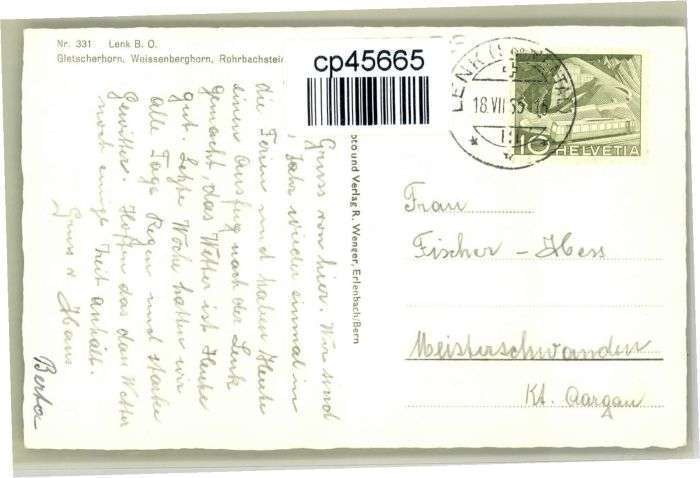 Nr. 331 Lenk B. O.
Gletscherhorn, Weissenberghorn, Rohrbachstein
cp45665
LENK (
18.VII 55
10 HELVETIA
Photo und Verlag R. Wenger, Erlenbach/Bern
Gruss von hier. Wir sind
Jahr wieder einmal in
die Ferien und haben Heute
einen Ausflug nach der Lenk
gemacht, das Wetter ist Heute
gut. Letzte Woche hatten wir
alle Tage Regen und starke
Gewitter. Hoffen das das Wetter
noch einige Zeit anhält.
Gruss v Hans
Berta
Frau
Fischer - Hess
Meisterschwanden
Kt. Aargau